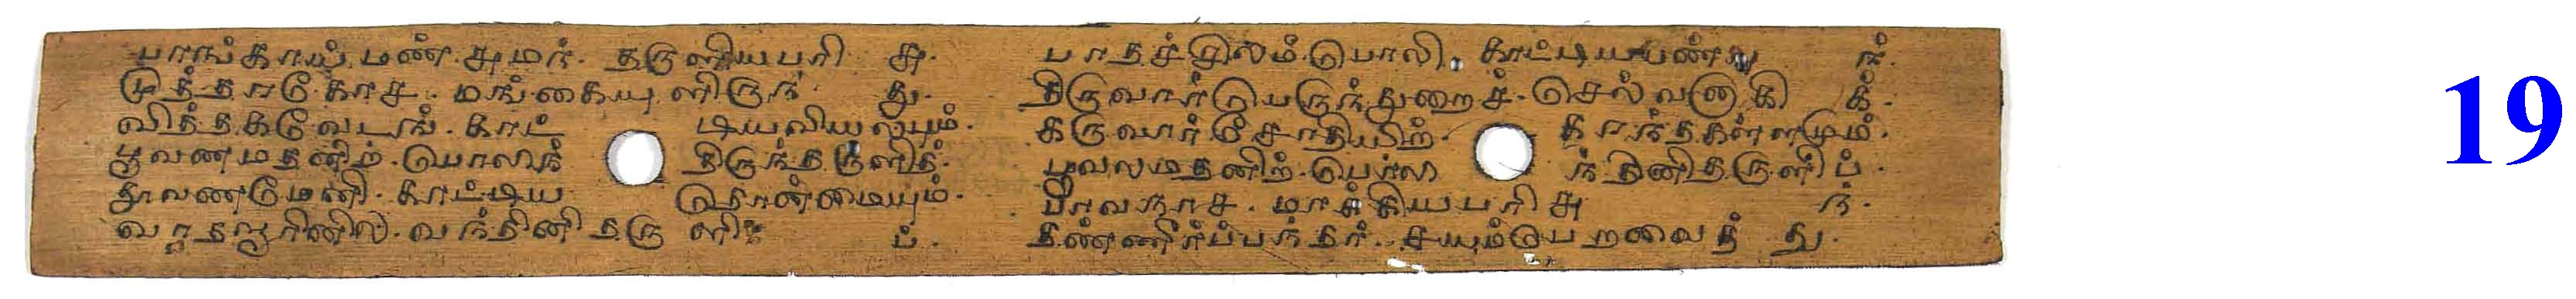 பாங்காய். மண். சுமந். தருளியபரி சு. பாதச்சிலம். பொலி. காட்டியபண்பு ந்.
முத்தாடு. காச. மங்கைய ளிருந் து. திருவார்பெருந்துறைச். செல்வனாகி க்.
வித்தகவேடங். காட் டியவியல்பும். கருவார். சோதியிற். கரந்தகள்ளமும்.
பூவணமதனிற். பொலிந் திருந்தருளித். பூவலமதனிற். பொலி ந்தினிதருளிப்.
தூவணமேனி. காட்டிய தொன்மையும். பாவநாச. மாக்கியபரி சு ந்.
வாதவூரினில். வந்தினிதரு ளி ப். தண்ணீர்ப்பந்தர். சயம்பெறவைத் து.
19